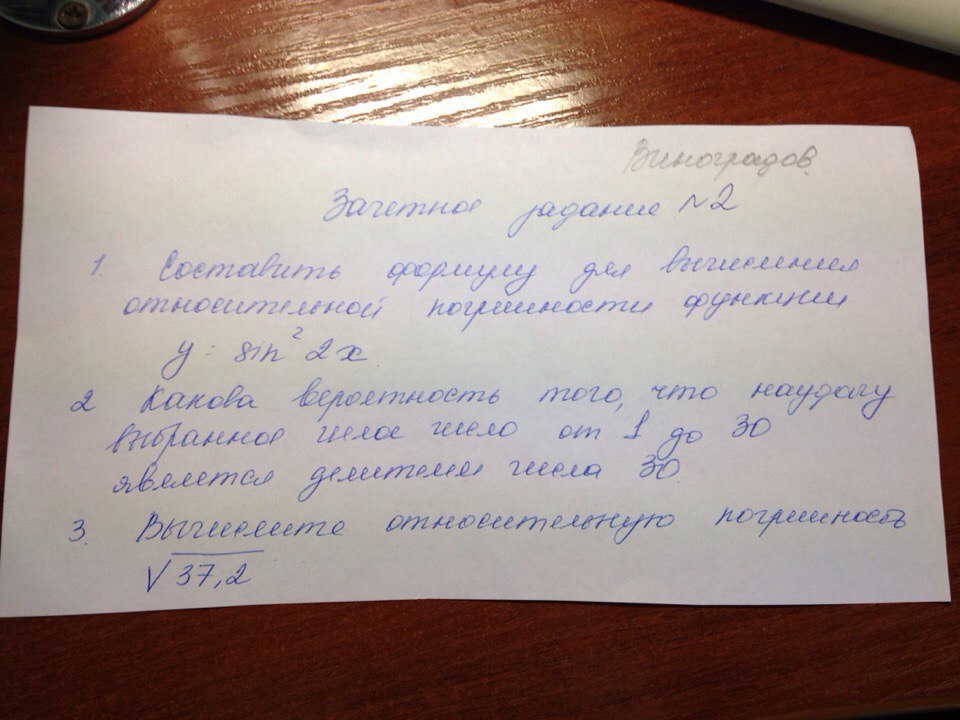 Виноградов.
Зачетное задание №2
1. Составить формулу для вычисления
относительной погрешности функции
y = sin² 2x
2 Какова вероятность того, что наудачу
выбранное целое число от 1 до 30
является делителем числа 30.
3. Вычислите относительную погрешность
√37,2